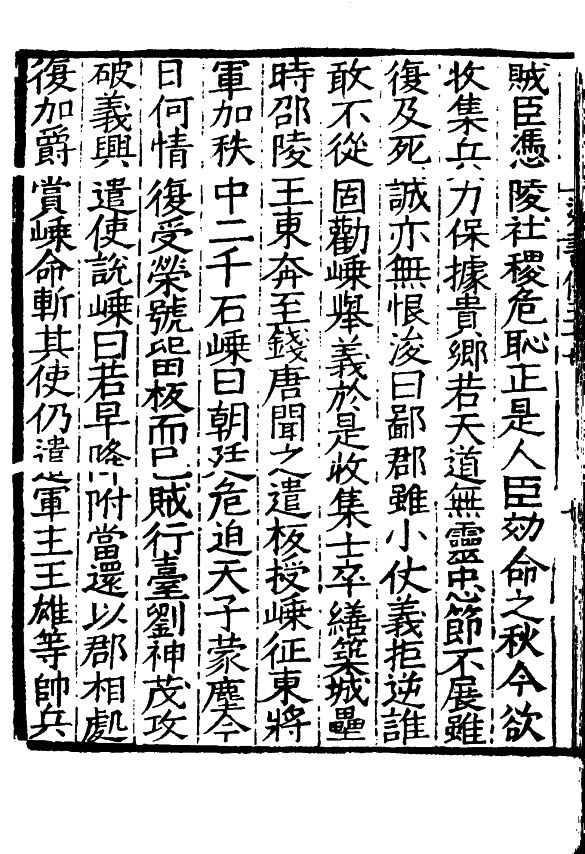 賊臣憑陵社稷危恥正是人臣効命之秋今欲
收集兵力保據貴鄉若天道無靈忠節不展雖
復及死誠亦無恨浚曰鄙郡雖小仗義拒逆誰
敢不從固勸嵊舉義於是收集士卒繕築城壘
時邵陵王東奔至錢唐聞之遣板授嵊征東將
軍加秩中二千石嵊曰朝廷危迫天子蒙塵今
日何情復受榮號留板而已賊行臺劉神茂攻
破義興遣使說嵊曰若早降附當還以郡相處
復加爵賞嵊命斬其使仍遣軍主王雄等帥兵